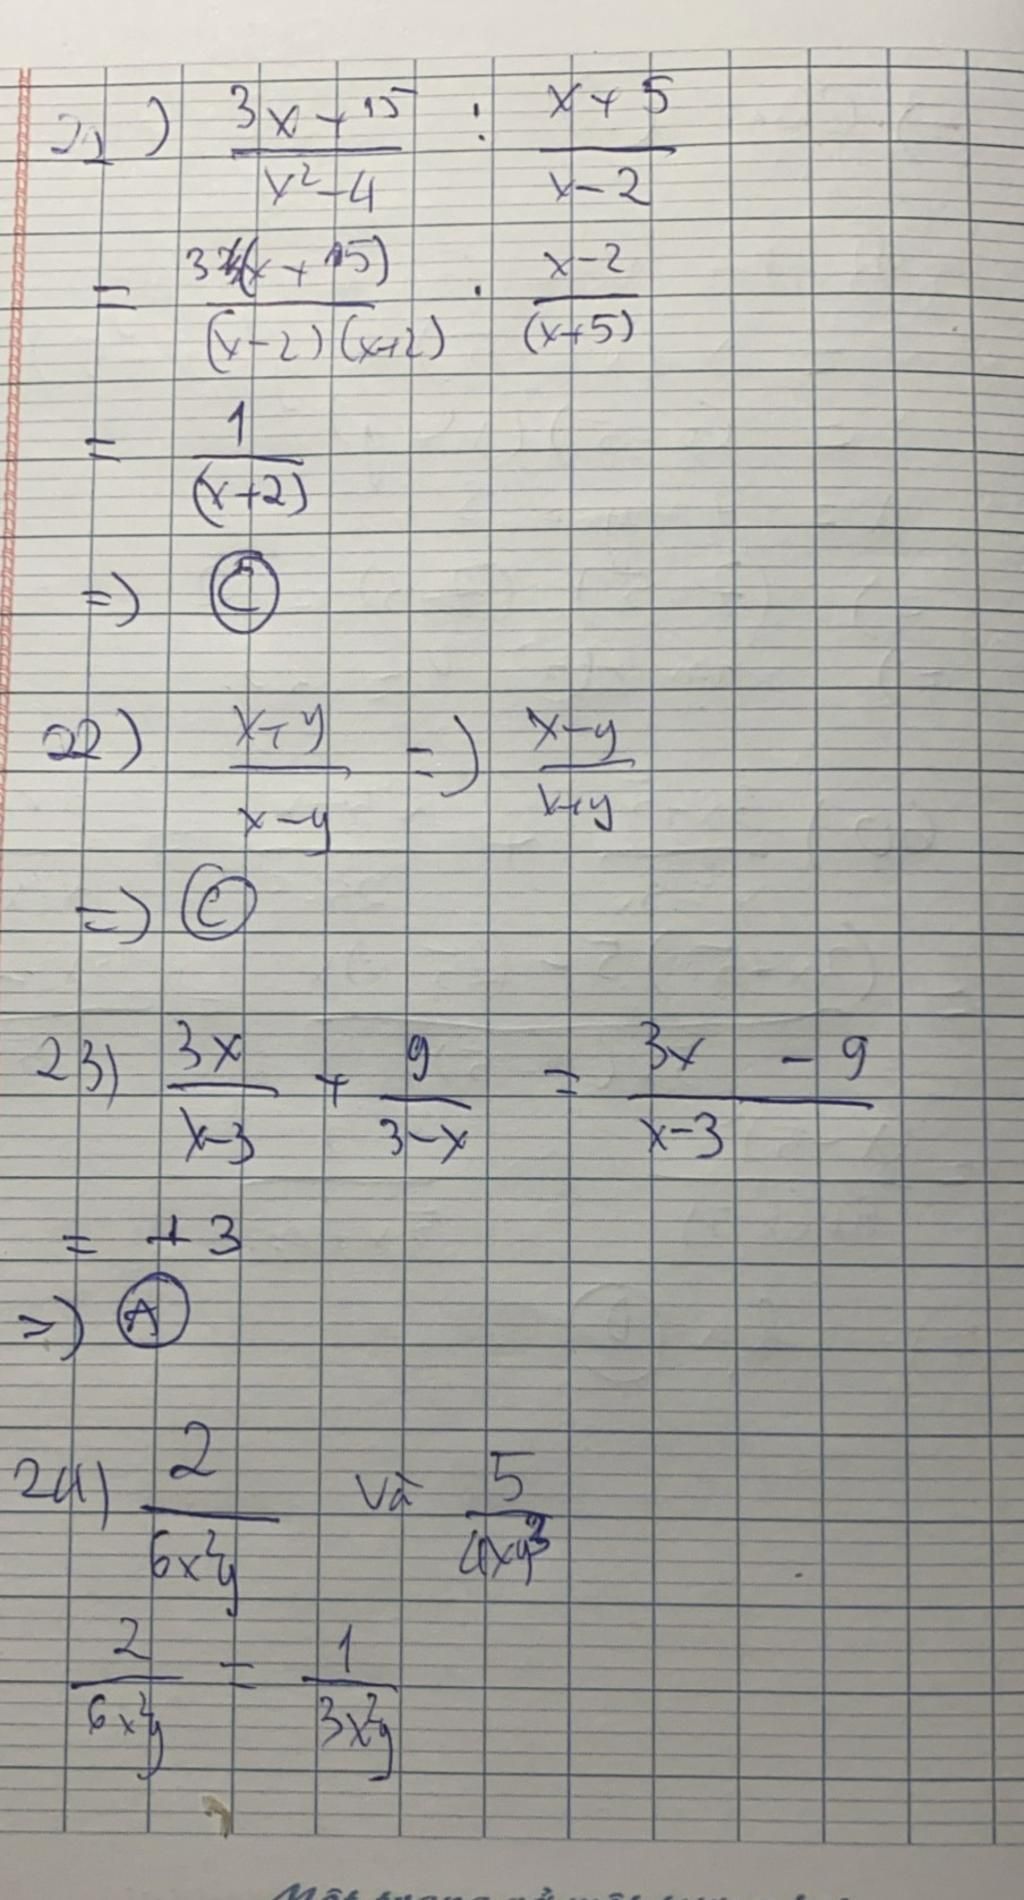 21) (3x+15)/(x²-4) : (x+5)/(x-2)
= 3(x+15)/((x-2)(x+2)) . (x-2)/(x+5)
= 1/(x+2)
=> C
22) (x+y)/(x-y) => (x-y)/(x+y)
=> C
23) 3x/(x-3) + 9/(3-x) = (3x - 9)/(x-3)
= +3
=> A
24) 2/(6x²y) và 5/(4xy³)
2/(6x²y) = 1/(3x²y)